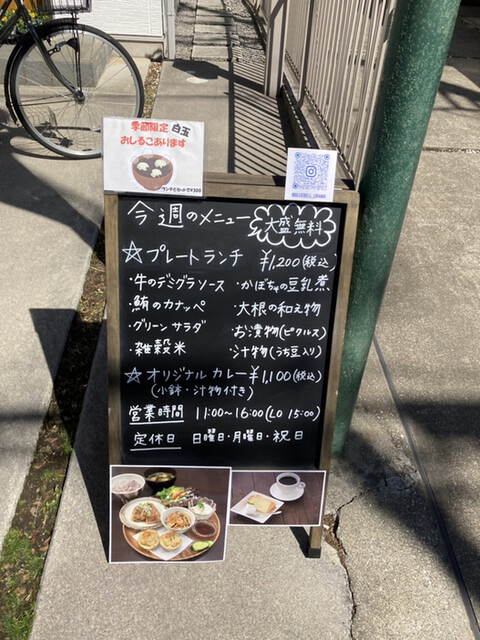 季節限定 白玉
おしるこあります
ランチとセットで¥300
今週のメニュー
大盛無料
☆プレートランチ ¥1,200(税込)
・牛のデミグラソース ・かぼちゃの豆乳煮
・鮪のカナッペ ・大根の和え物
・グリーンサラダ ・お漬物(ピクルス)
・雑穀米 ・汁物(うち豆入り)
☆オリジナルカレー¥1,100(税込)
(小鉢・汁物付き)
営業時間 11:00~16:00(LO 15:00)
定休日 日曜日・月曜日・祝日